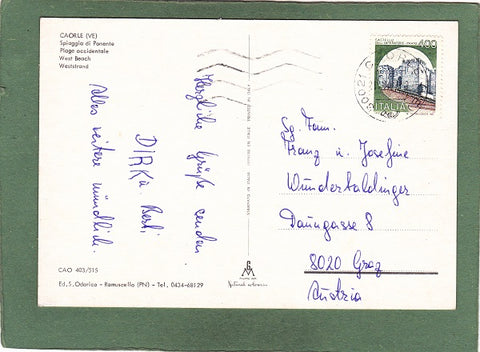 CAORLE (VE)
Spiaggia di Ponente
Plage occidentale
West Beach
Weststrand
Herzliche Grüße senden
DIRK u. Berti
Alles weitere mündlich.
CAO 403/515
Ed. S. Odorico - Ramuscello (PN) - Tel. 0434-68129
400
ITALIA
30021
Fam.
Franz u. Josefine
Wünderbaldinger
Daungasse 8
8020 Graz
Austria